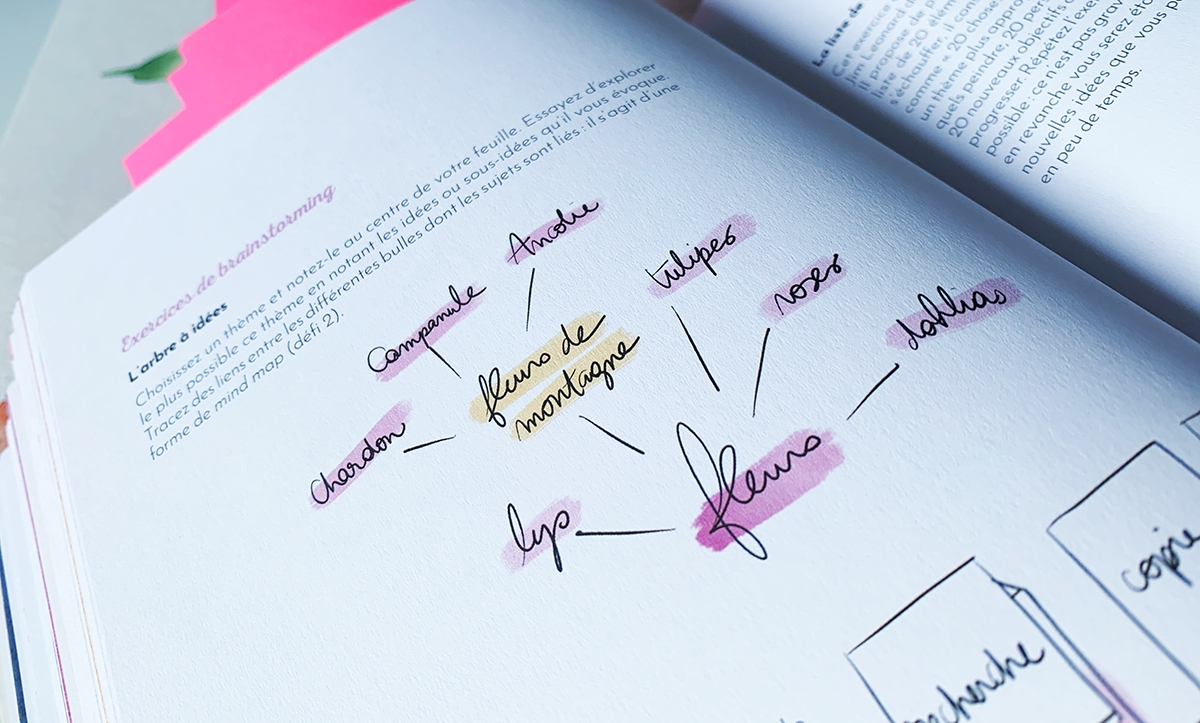 Exercices de brainstorming
L'arbre à idées
Choisissez un thème et notez-le au centre de votre feuille. Essayez d'explorer
le plus possible ce thème en notant les idées ou sous-idées qu'il vous évoque.
Tracez des liens entre les différentes bulles dont les sujets sont liés : il s'agit d'une
forme de mind map (défi 2).
Ancolie
Campanule
fleurs de
montagne
Chardon
tulipes
roses
dahlias
lys
fleurs
recherche
copie
La liste de
Cet exercice
Jim Legrand
Il propose de p
liste de 20 élém
s'échauffer, il con
comme « 20 chose
un thème plus appro
quels peindre, 20 per
20 nouveaux objectifs
progresser. Répétez l'exe
possible : ce n'est pas grav
en revanche vous serez éto
nouvelles idées que vous p
en peu de temps.